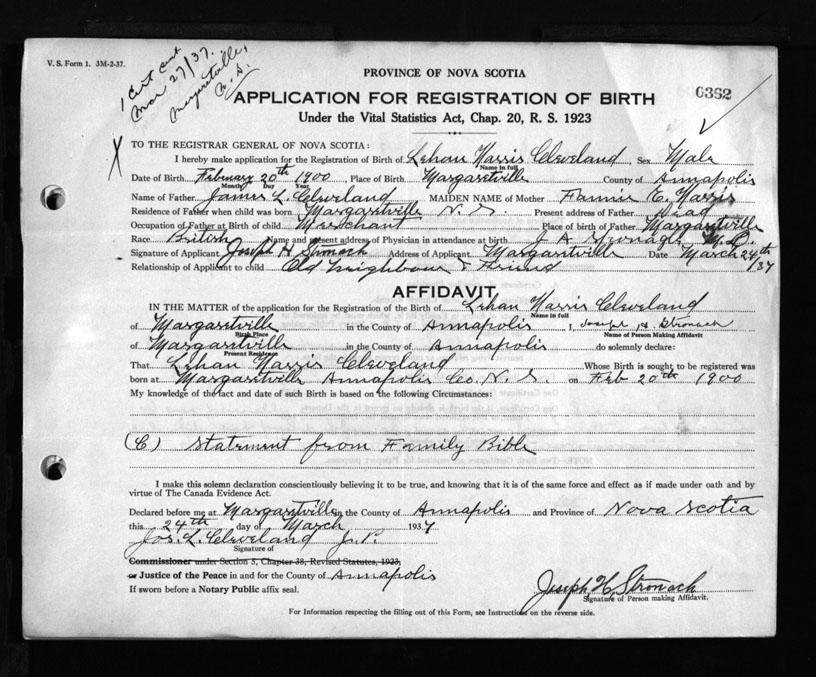 V. S. Form 1. 3M-2-37.
1 Cert sent
Mar 27/37.
Margaretville,
N. S.
PROVINCE OF NOVA SCOTIA
0362
APPLICATION FOR REGISTRATION OF BIRTH
Under the Vital Statistics Act, Chap. 20, R. S. 1923
X
TO THE REGISTRAR GENERAL OF NOVA SCOTIA:
I hereby make application for the Registration of Birth of Lehan Harris Cleveland Sex Male
Name in full
Date of Birth February 20th 1900 Place of Birth Margaretville County of Annapolis
Month Day Year
Name of Father James L. Cleveland MAIDEN NAME of Mother Fannie C. Harris
Residence of Father when child was born Margaretville N. S. Present address of Father Dead
Occupation of Father at Birth of child Merchant Place of birth of Father Margaretville
Race British Name and present address of Physician in attendance at birth J A M. D.
Signature of Applicant Joseph H Stronach Address of Applicant Margaretville Date March 24th /37
Relationship of Applicant to child Old neighbour & Friend
AFFIDAVIT
IN THE MATTER of the application for the Registration of the Birth of Lehan Harris Cleveland
Name in full
of Margaretville in the County of Annapolis I, Joseph H. Stronach
Birth Place Name of Person Making Affidavit
of Margaretville in the County of Annapolis do solemnly declare:
Present Residence
That Lehan Harris Cleveland Whose Birth is sought to be registered was
born at Margaretville Annapolis Co. N. S. on Feb 20th 1900
My knowledge of the fact and date of such Birth is based on the following Circumstances:
(C) Statment from Family Bible
I make this solemn declaration conscientiously believing it to be true, and knowing that it is of the same force and effect as if made under oath and by
virtue of The Canada Evidence Act.
Declared before me at Margaretville in the County of Annapolis and Province of Nova Scotia
this 24th day of March 1937
Jos. L. Cleveland J. P.
Signature of
Commissioner under Section 3, Chapter 38, Revised Statutes, 1923,
or Justice of the Peace in and for the County of Annapolis
If sworn before a Notary Public affix seal.
Joseph H. Stronach
Signature of Person making Affidavit.
For Information respecting the filling out of this Form, see Instructions on the reverse side.